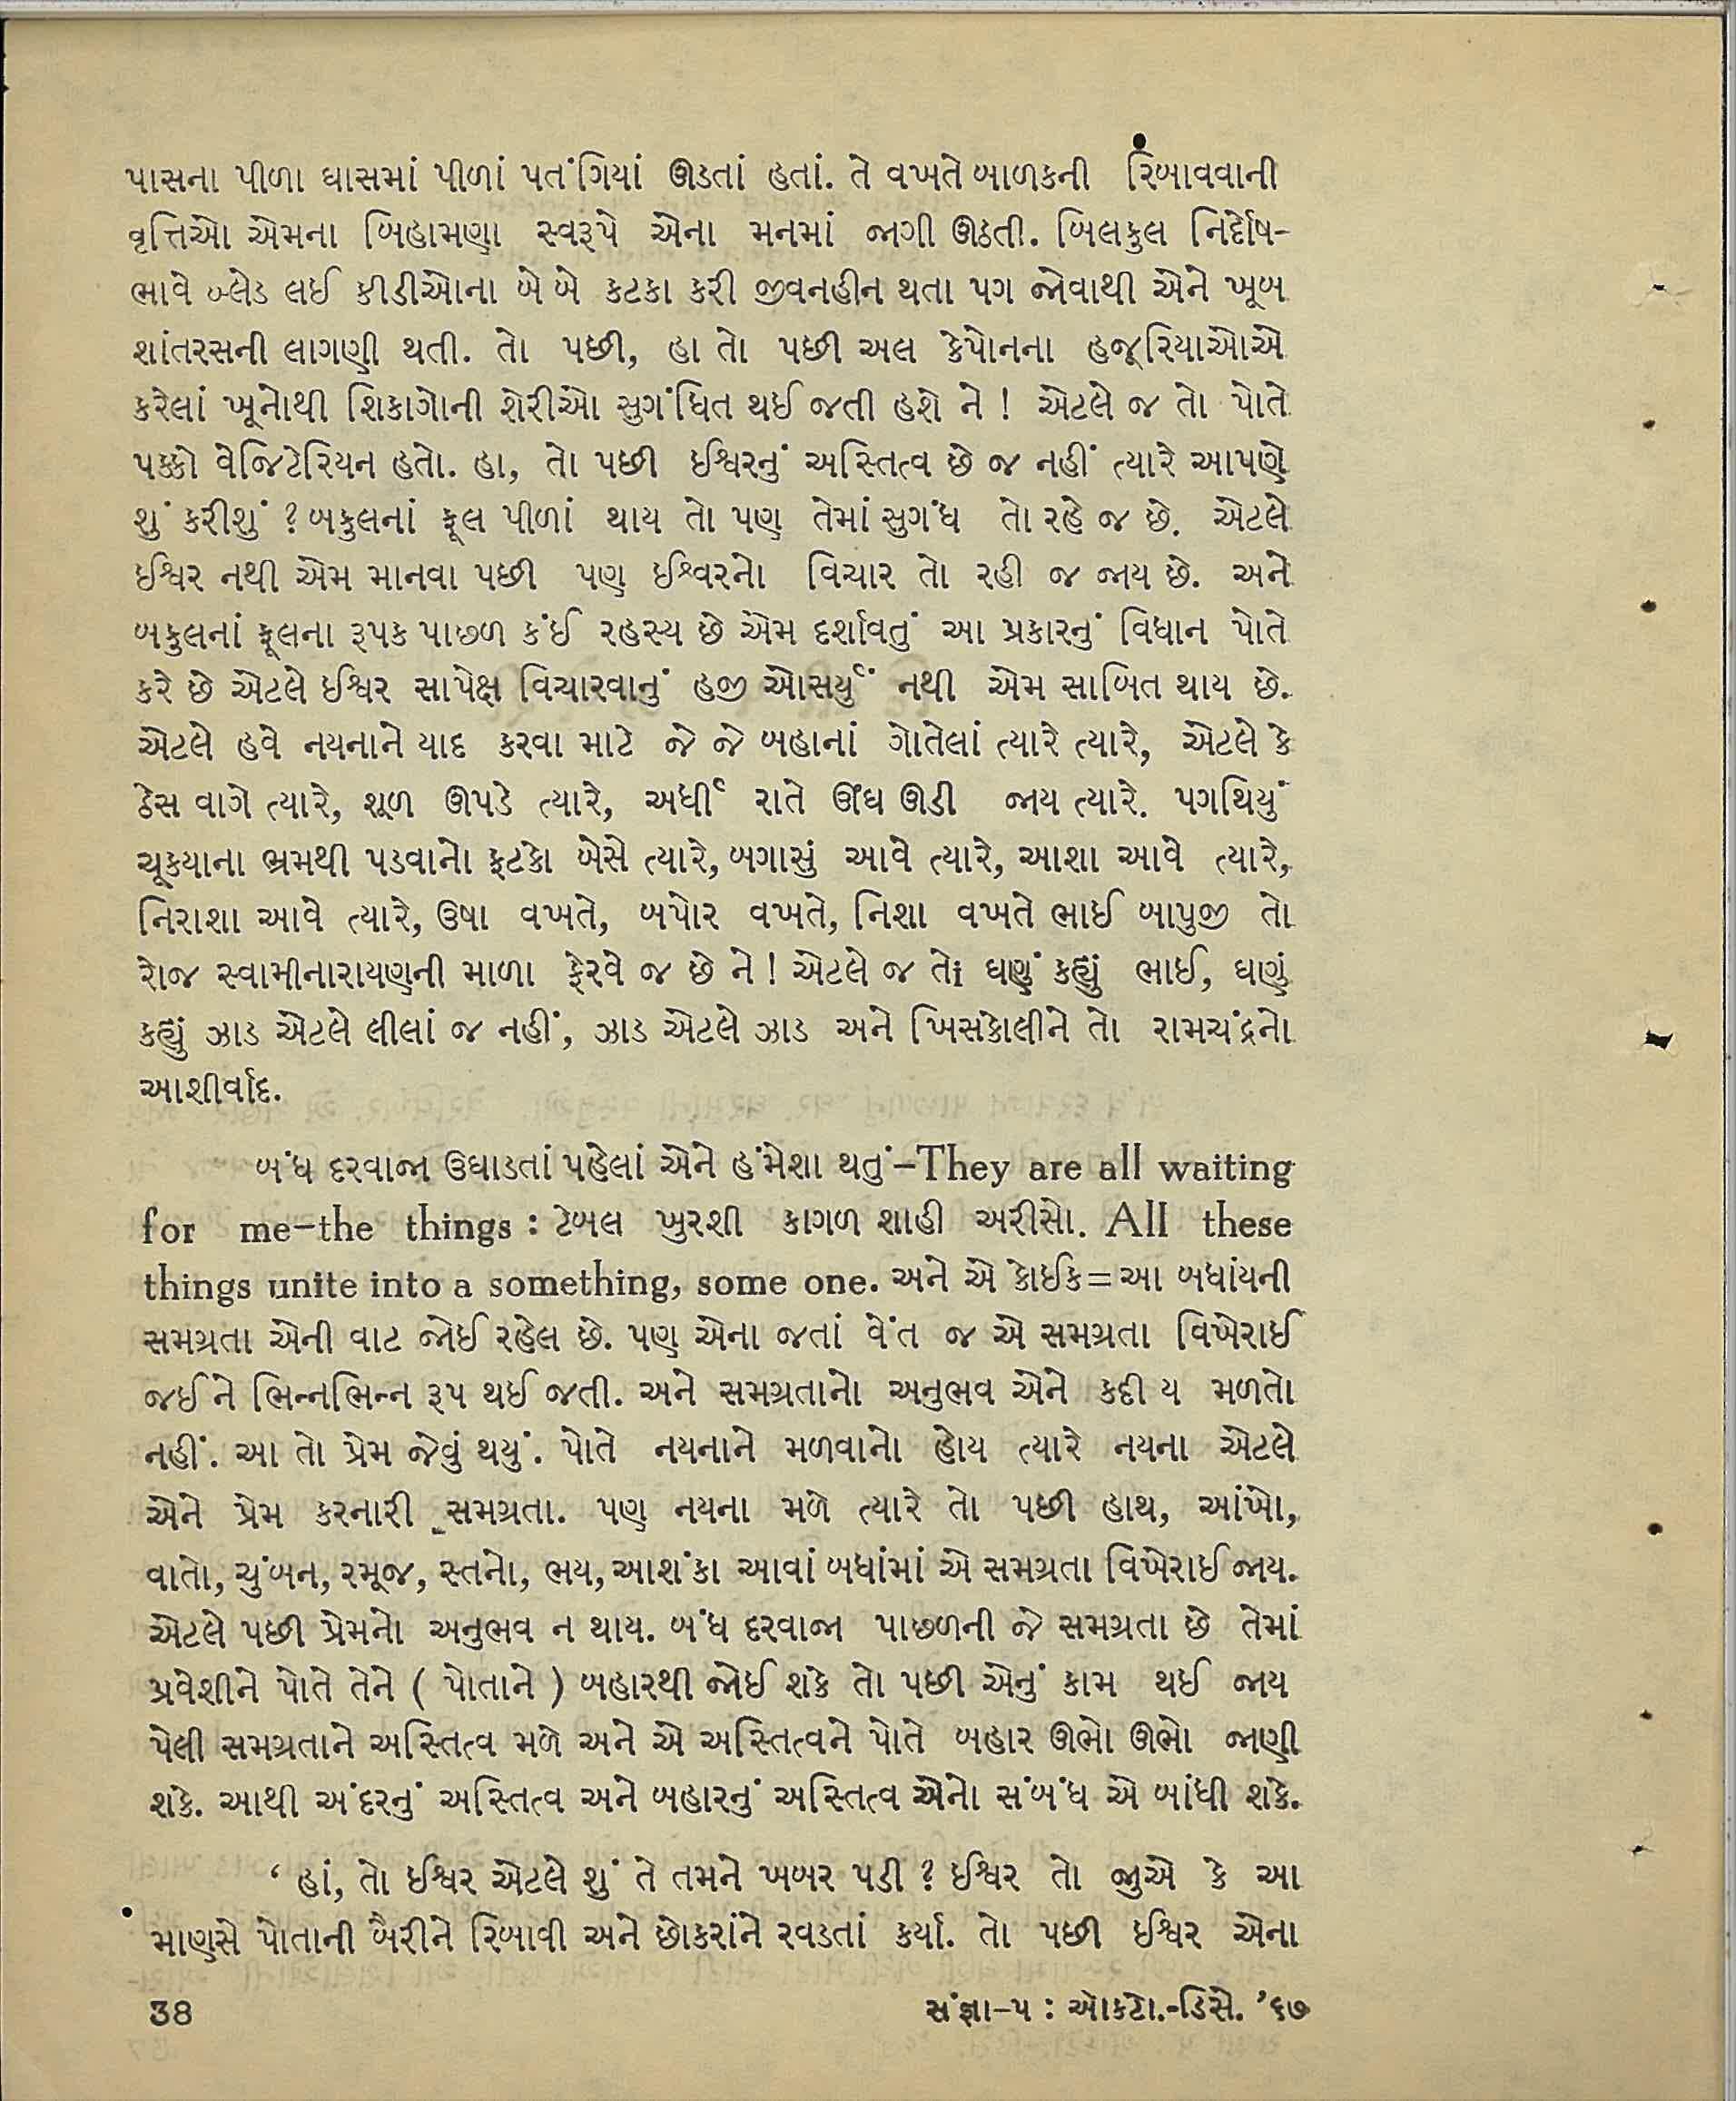 પાસના પીળા ઘાસમાં પીળાં પતંગિયાં ઊડતાં હતાં. તે વખતે બાળકની રિબાવવાની
વૃત્તિઓ એમના બિહામણા સ્વરૂપે એના મનમાં જાગી ઊઠતી. બિલકુલ નિર્દોષ-
ભાવે બ્લેડ લઈ કીડીઓના બે બે કટકા કરી જીવનહીન થતા પગ જોવાથી એને ખૂબ
શાંતરસની લાગણી થતી. તો પછી, હા તો પછી અલ કેપોનના હજૂરિયાઓએ
કરેલાં ખૂનોથી શિકાગોની શેરીઓ સુગંધિત થઈ જતી હશે ને ! એટલે જ તો પોતે
પક્કો વેજિટેરિયન હતો. હા, તો પછી ઈશ્વરનું અસ્તિત્વ છે જ નહીં ત્યારે આપણે
શું કરીશું ? બકુલનાં ફૂલ પીળાં થાય તો પણ તેમાં સુગંધ તો રહે જ છે. એટલે
ઈશ્વર નથી એમ માનવા પછી પણ ઈશ્વરનો વિચાર તો રહી જ જાય છે. અને
બકુલનાં ફૂલના રૂપક પાછળ કંઈ રહસ્ય છે એમ દર્શાવતું આ પ્રકારનું વિધાન પોતે
કરે છે એટલે ઈશ્વર સાપેક્ષ વિચારવાનું હજી ઓસર્યું નથી એમ સાબિત થાય છે.
એટલે હવે નયનાને યાદ કરવા માટે જે જે બહાનાં ગોતેલાં ત્યારે ત્યારે, એટલે કે
ઠેસ વાગે ત્યારે, શૂળ ઊપડે ત્યારે, અર્ધી રાતે ઊંઘ ઊડી જાય ત્યારે. પગથિયું
ચૂક્યાના ભ્રમથી પડવાનો ફટકો બેસે ત્યારે, બગાસું આવે ત્યારે, આશા આવે ત્યારે,
નિરાશા આવે ત્યારે, ઉષા વખતે, બપોર વખતે, નિશા વખતે ભાઈ બાપુજી તો
રોજ સ્વામીનારાયણની માળા ફેરવે જ છે ને ! એટલે જ તો ઘણું કહ્યું ભાઈ, ઘણું
કહ્યું ઝાડ એટલે લીલાં જ નહીં, ઝાડ એટલે ઝાડ અને ખિસકોલીને તો રામચંદ્રનો
આશીર્વાદ.
બંધ દરવાજા ઉઘાડતાં પહેલાં એને હંમેશા થતું–They are all waiting
for me–the things : ટેબલ ખુરશી કાગળ શાહી અરીસો. All these
things unite into a something, some one. અને એ કોઈક=આ બધાંયની
સમગ્રતા એની વાટ જોઈ રહેલ છે. પણ એના જતાં વેંત જ એ સમગ્રતા વિખેરાઈ
જઈ ને ભિન્નભિન્ન રૂપ થઈ જતી. અને સમગ્રતાનો અનુભવ એને કદી ય મળતો
નહીં. આ તો પ્રેમ જેવું થયું. પોતે નયનાને મળવાનો હોય ત્યારે નયના એટલે
એને પ્રેમ કરનારી સમગ્રતા. પણ નયના મળે ત્યારે તો પછી હાથ, આંખો,
વાતો, ચુંબન, રમૂજ, સ્તનો, ભય, આશંકા આવાં બધાંમાં એ સમગ્રતા વિખેરાઈ જાય.
એટલે પછી પ્રેમનો અનુભવ ન થાય. બંધ દરવાજા પાછળની જે સમગ્રતા છે તેમાં
પ્રવેશીને પોતે તેને ( પોતાને ) બહારથી જોઈ શકે તો પછી એનું કામ થઈ જાય
પેલી સમગ્રતાને અસ્તિત્વ મળે અને એ અસ્તિત્વને પોતે બહાર ઊભો ઊભો જાણી
શકે. આથી અંદરનું અસ્તિત્વ અને બહારનું અસ્તિત્વ એનો સંબંધ એ બાંધી શકે.
‘ હાં, તો ઈશ્વર એટલે શું તે તમને ખબર પડી ? ઈશ્વર તો જુએ કે આ
માણસે પોતાની બૈરીને રિબાવી અને છોકરાંને રવડતાં કર્યા. તો પછી ઈશ્વર એના
38
સંજ્ઞા–૫ : ઑક્ટો.-ડિસે. ’૬૭